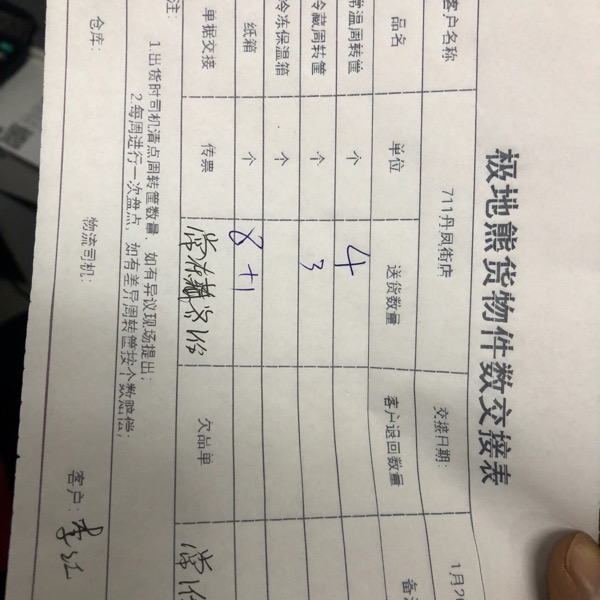 极地熊货物件数交接表
客户名称 711丹凤街店 交接日期: 1月2
品名 单位 送货数量 客户退回数量 备
常温周转筐 个 4
冷藏周转筐 个 3
冷冻保温箱 个
纸箱 个 8+1
单据交接 传票 欠品单
注:
1.出货时司机清点周转筐数量,如有异议现场提出;
2.每周进行一次盘点,如有差异周转筐按个数赔偿;
仓库: 物流司机: 客户: